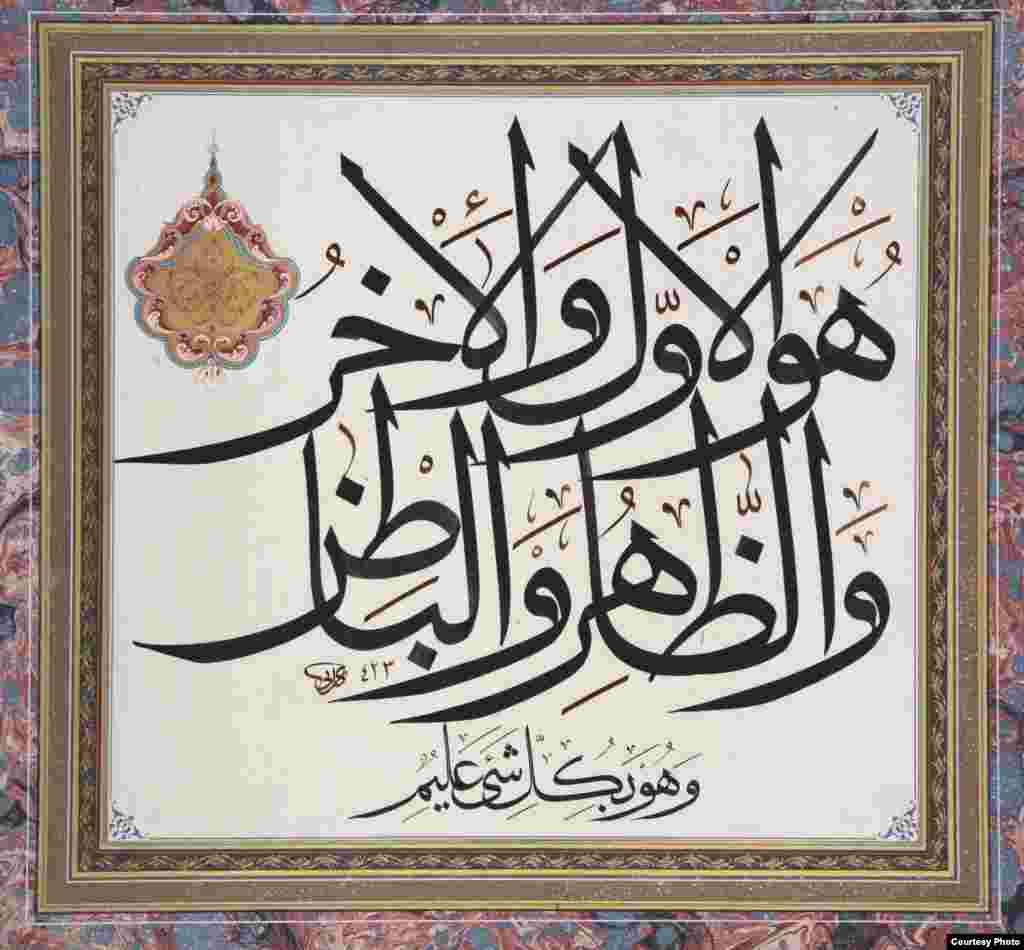 هُوَ الْأَوَّلُ وَالْآخِرُ
وَالظَّاهِرُ وَالْبَاطِنُ
٤٢٣
وَهُوَ بِكُلِّ شَيْءٍ عَلِيمٌ
Courtesy Photo